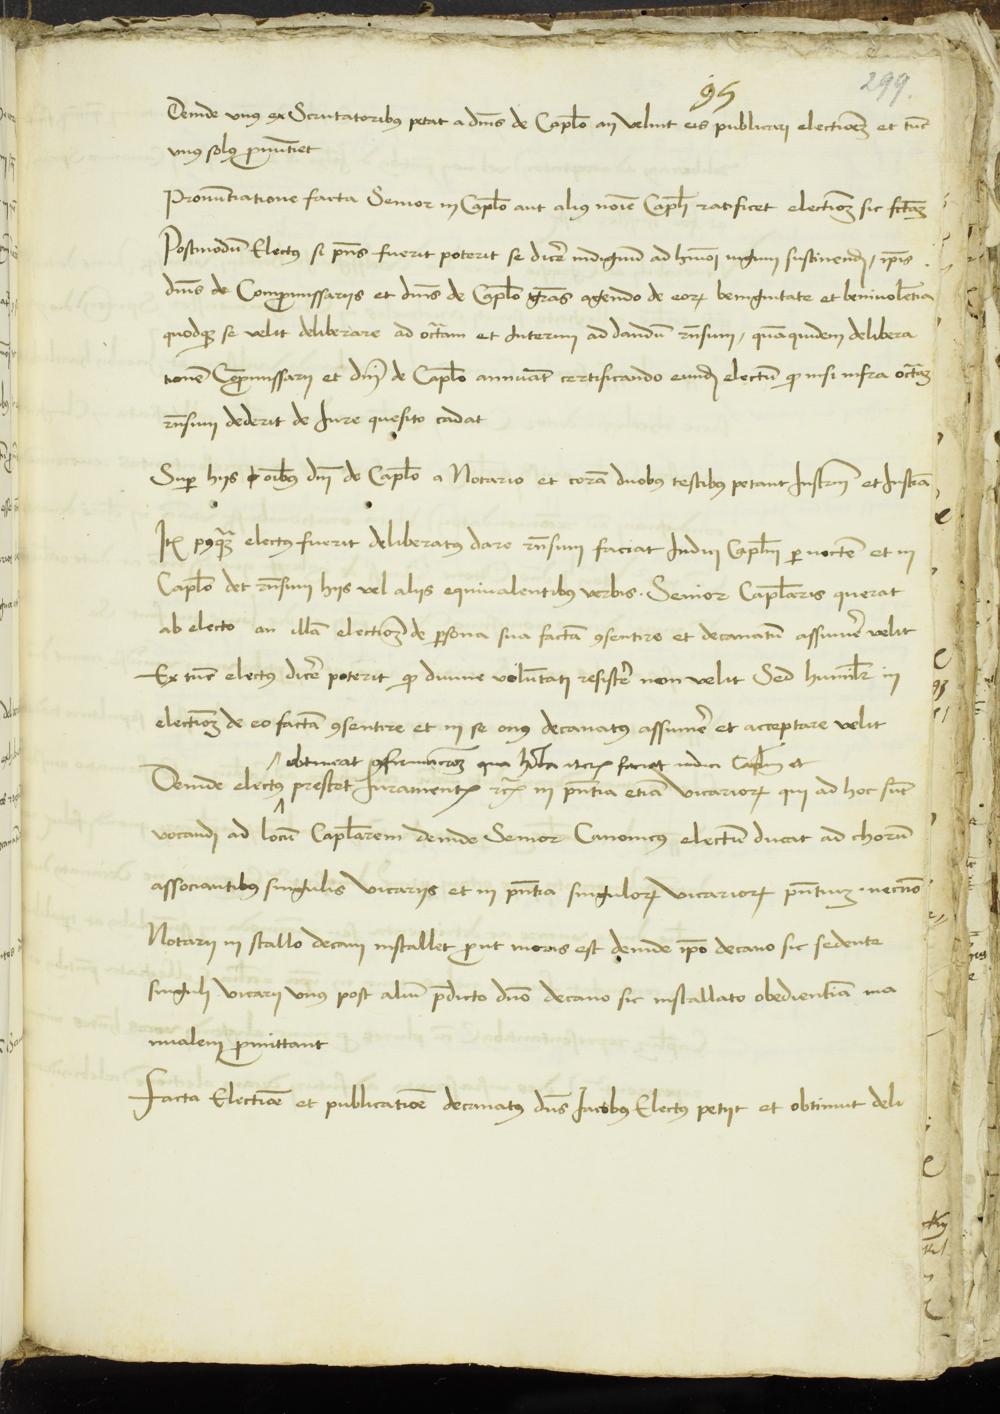 95
299.
Deinde vnus ex Scrutatoribus petat a dnis de Caplo an velint eis publicari electionem et tunc
vnus solus pronuntiet
Pronuntiatione facta Senior in Caplo aut alius noie Capli ratificet electionem sic factam
Postmodum Electus si pns fuerit poterit se dicere indignum ad hmoi iugum sustinendum / ipsis
dnis de Compromissariis et dnis de Caplo gras agendo de eorum benignitate et beniuolentia
quodque se velit deliberare ad octauam et Interim ad dandum rnsum / quamquidem delibera
tionem Compromissarii et dni de Caplo annuant certificando eundem electum quod nisi infra octauam
rnsum dederit de Iure quesito cadat
Super hiis oibus dni de Caplo a Notario et coram duobus testibus petant Instrm et Instra
Item postquam electus fuerit deliberatus dare rnsum faciat Indici Caplm per noctem et in
Caplo det rnsum hiis vel aliis equiualentibus verbis. Senior Caplaris querat
ab electo an illam electionem de persona sua factam consentire et decanatum assumere velit
Ex tunc electus dicere poterit quod diuine voluntati resistere non velit Sed humiliter in
electionem de eo factam consentire et in se onus decanatus assumere et acceptare velit
obtineat confirmationem qua habita iterum faciat indici Caplm et
Deinde electus prestet Iuramentum rc in pntia etiam vicariorum qui ad hoc sunt
vocandi ad locum Caplarem deinde Senior Canonicus electum ducat ad chorum
associantibus singulis vicariis et in pntia singulorum vicariorum pntium necnon
Notarii in stallo decani installet prout moris est deinde ipso decano sic sedente
singuli vicarii vnus post alium predicto dno decano sic installato obedientiam ma
nualem promittant
Facta Electione et publicatione decanatus dns Iacobus Electus petiit et obtinuit deli